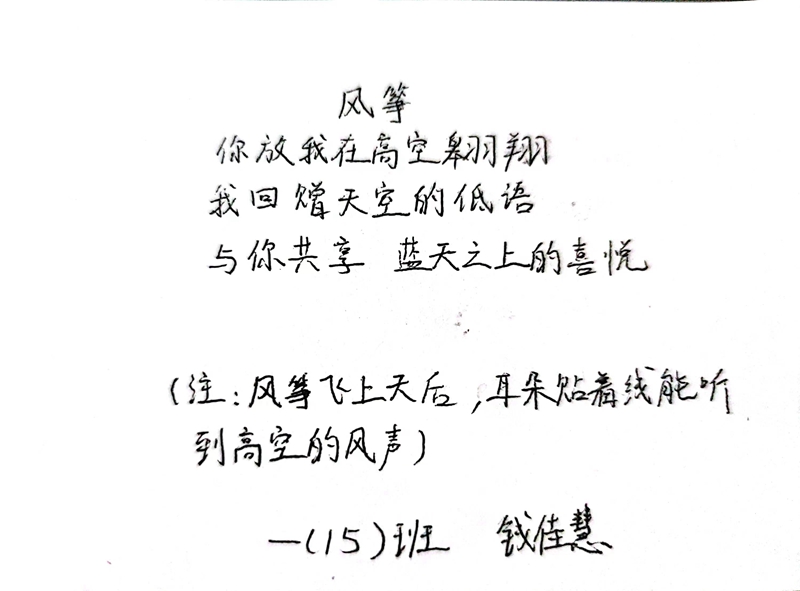 风筝
你放我在高空翱翔
我回赠天空的低语
与你共享 蓝天之上的喜悦
(注:风筝飞上天后,耳朵贴着线能听
到高空的风声)
一(15)班 钱佳慧